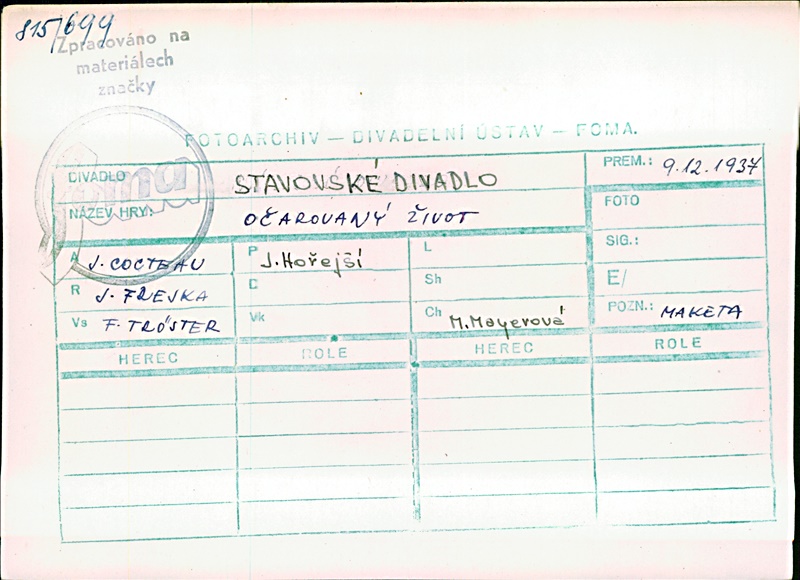 815/699
Zpracováno na
materiálech
značky
foma
FOTOARCHIV — DIVADELNÍ ÚSTAV — FOMA.
DIVADLO STAVOVSKÉ DIVADLO
NÁZEV HRY: OČAROVANÝ ŽIVOT
PREM.: 9.12.1937
FOTO
SIG.:
E/
POZN.: MAKETA
A J. COCTEAU P J. Hořejší L
R J. FREJKA D Sh
Vs F. TRÖSTER Vk Ch M. Mayerová
HEREC ROLE HEREC ROLE